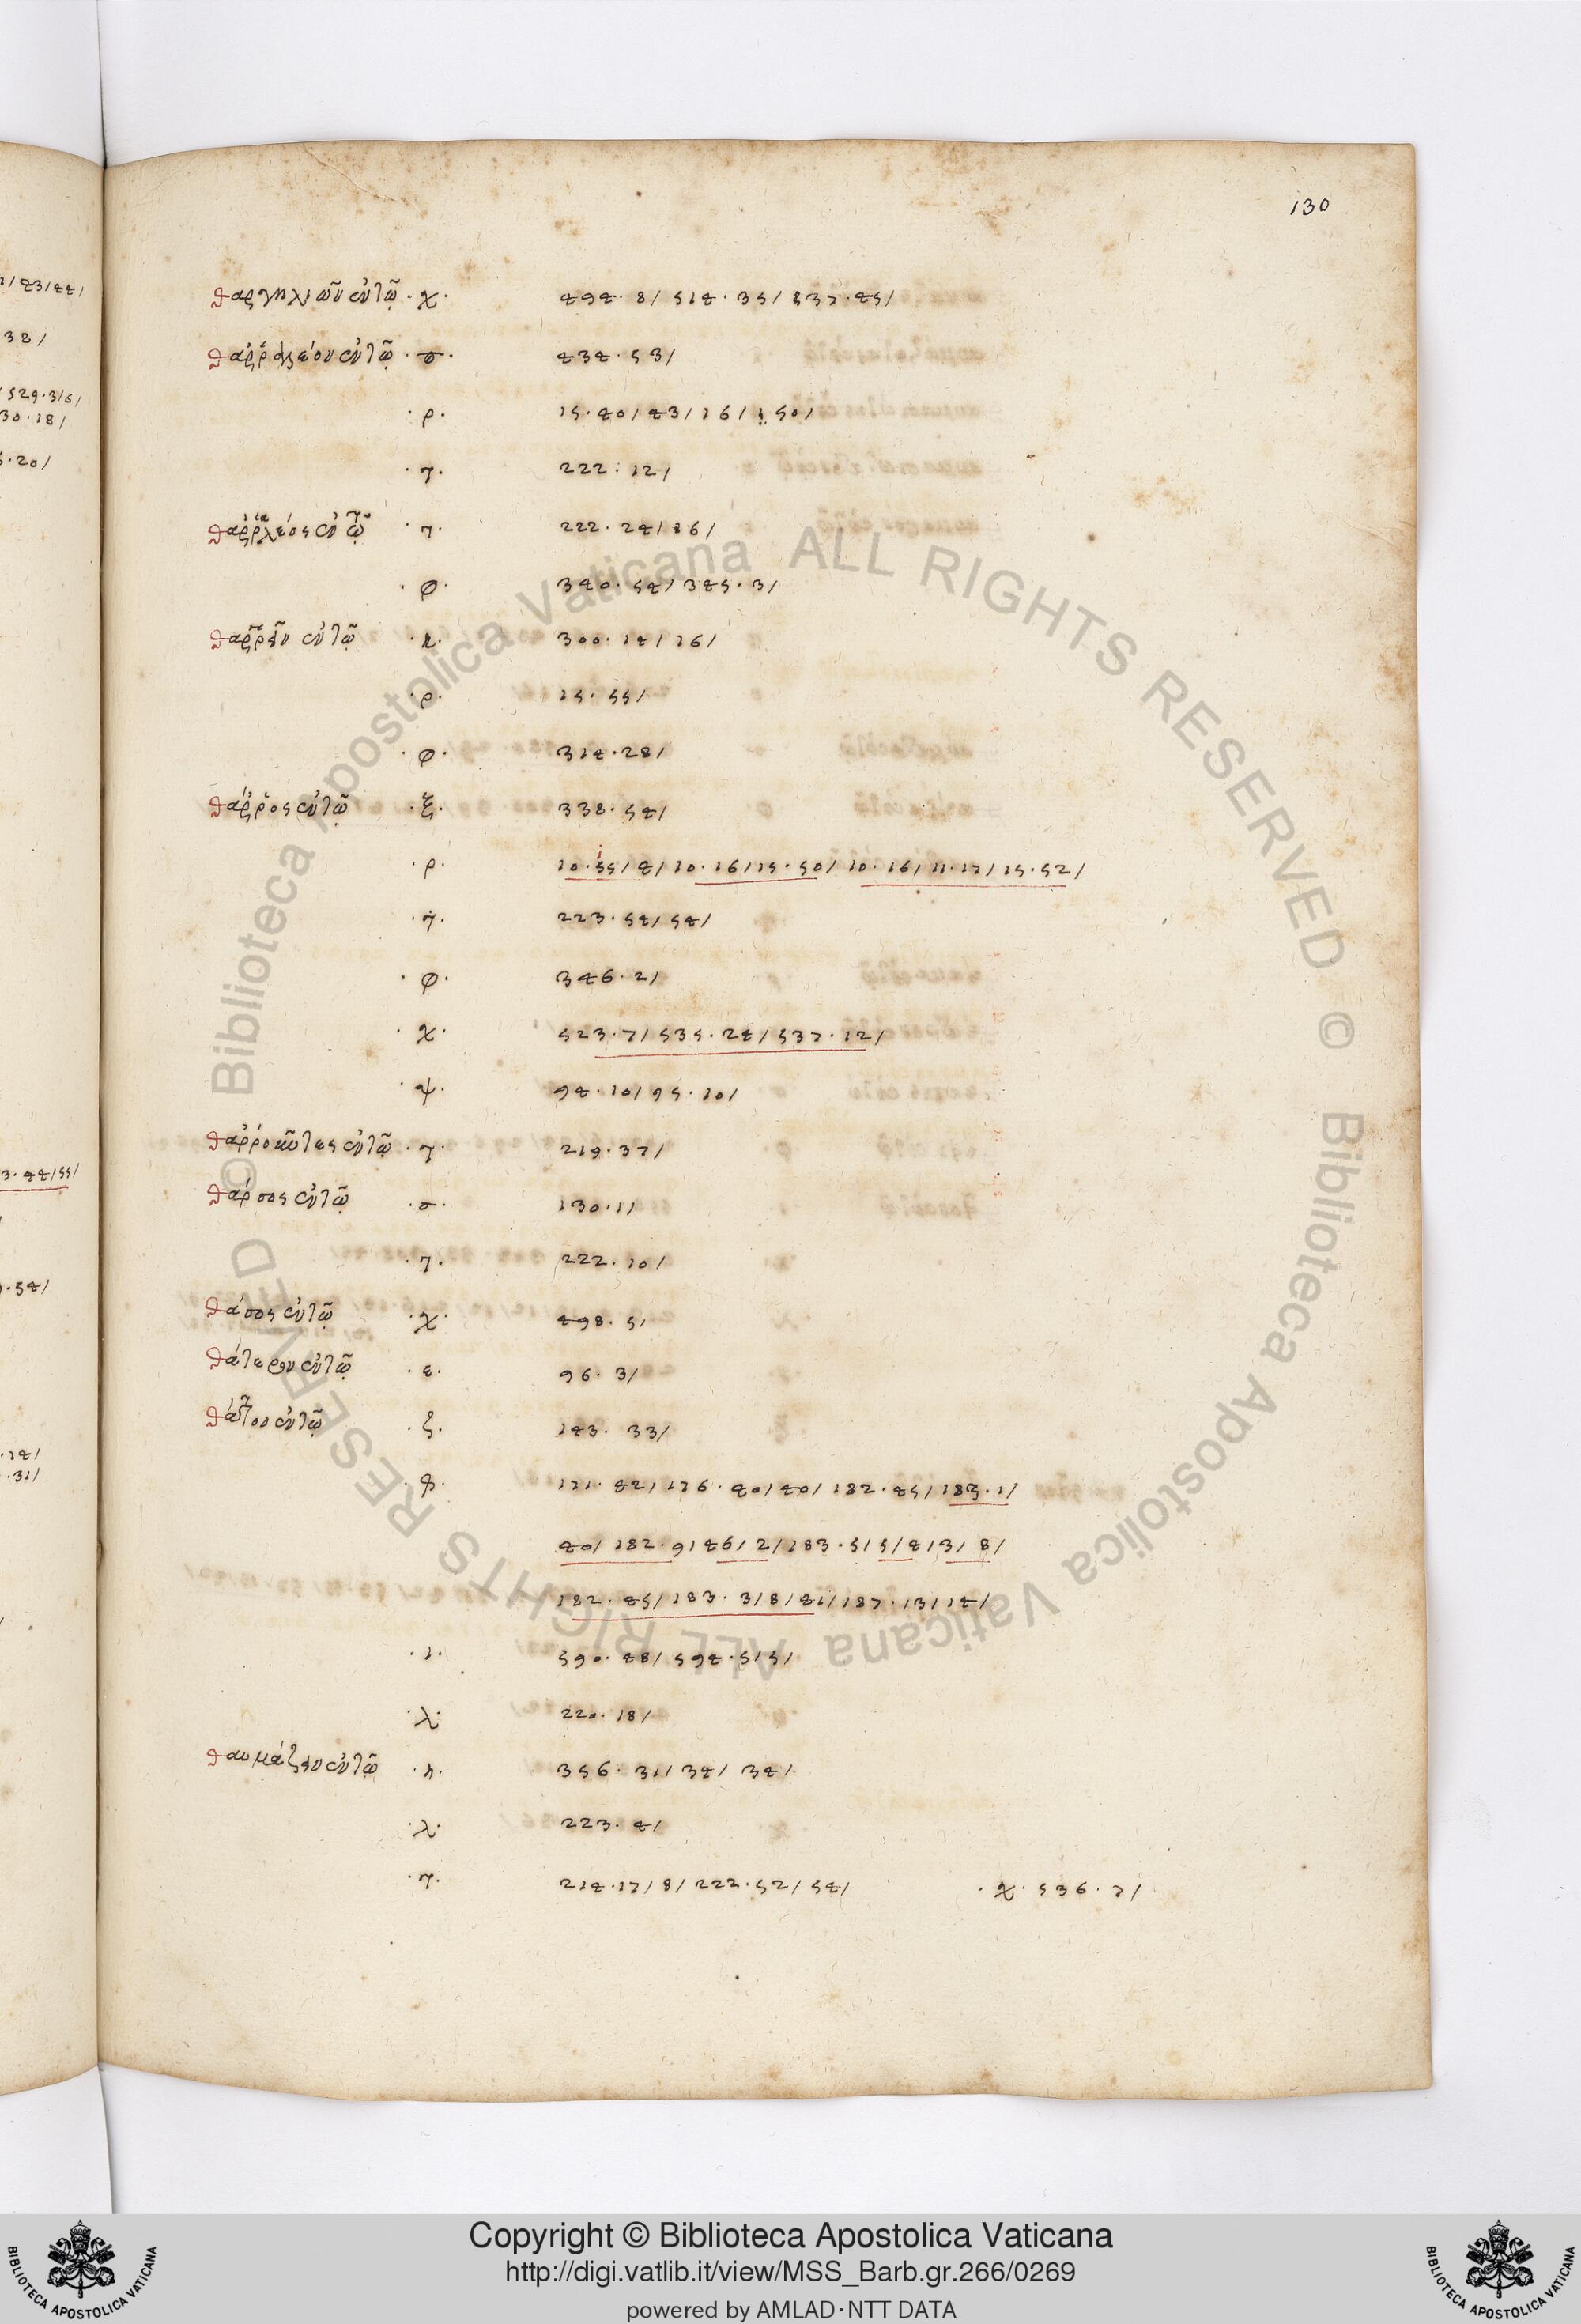 130
θαργηλιῶν ἐν τῷ · χ · 494 · 8 / 514 · 35 / 537 · 45 /
θαῤῥαλέον ἐν τῷ · σ · 434 · 53 /
· ρ · 15 · 40 / 43 / 16 / 50 /
· τ · 222 · 12 /
· τ · 222 · 24 / 36 /
· φ · 340 · 54 / 345 · 3 /
300 · 14 / 16 /
· ρ · 15 · 55 /
· φ · 314 · 28 /
θάῤῥος ἐν τῷ · ξ · 338 · 54 /
· ρ · 10 · 55 / 4 / 10 · 16 / 15 · 50 / 10 · 16 / 11 · 17 / 15 · 52 /
· τ · 223 · 54 / 54 /
· φ · 346 · 2 /
· χ · 523 · 7 / 535 · 24 / 537 · 12 /
· ψ · 94 · 10 / 95 · 10 /
θαῤῥοῦντες ἐν τῷ · τ · 219 · 37 /
θάρσος ἐν τῷ · σ · 130 · 11
· τ · 222 · 10 /
θάσος ἐν τῷ · χ · 498 · 5 /
θάτερον ἐν τῷ · ε · 96 · 3 /
θᾶττον ἐν τῷ · ζ · 143 · 33 /
171 · 42 / 176 · 40 / 40 / 182 · 45 / 183 · 1 /
40 / 182 · 9 / 46 / 2 / 183 · 5 / 5 / 4 / 3 / 8 /
182 · 45 / 183 · 3 / 8 / 41 / 187 · 13 / 14 /
· ι · 590 · 48 / 594 · 5 / 5 /
· λ · 220 · 18 /
θαυμάζειν ἐν τῷ · η · 356 · 31 / 34 / 34 /
· λ · 223 · 4 /
· τ · 214 · 17 / 8 / 222 · 52 / 54 / · χ · 536 · 7 /
Copyright © Biblioteca Apostolica Vaticana
http://digi.vatlib.it/view/MSS_Barb.gr.266/0269
powered by AMLAD·NTT DATA
BIBLIOTECA APOSTOLICA VATICANA
BIBLIOTECA APOSTOLICA VATICANA
© Biblioteca Apostolica Vaticana ALL RIGHTS RESERVED © Biblioteca Apostolica Vaticana ALL RIGHTS RESERVED